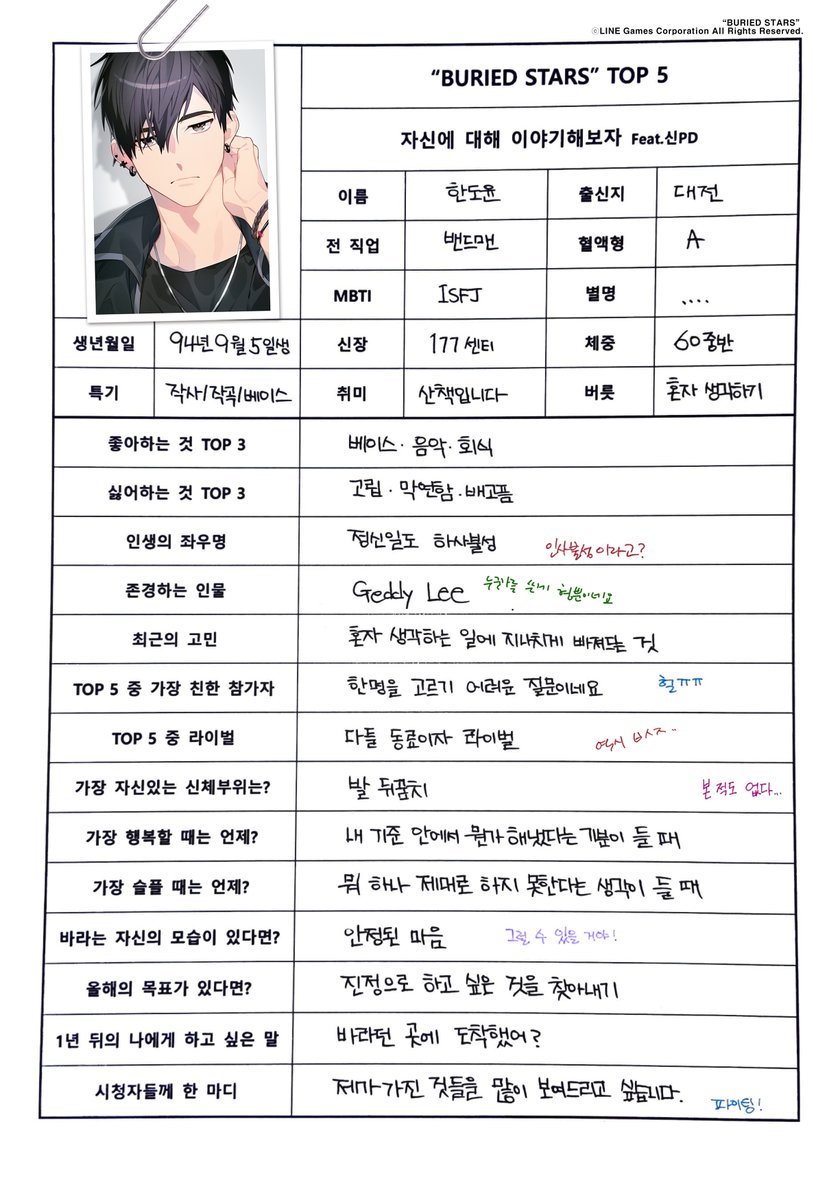 "BURIED STARS"
©LINE Games Corporation All Rights Reserved.
"BURIED STARS" TOP 5
자신에 대해 이야기해보자 Feat.신PD
이름 한도윤 출신지 대전
전 직업 밴드맨 혈액형 A
MBTI ISFJ 별명 ....
생년월일 94년 9월 5일생 신장 177 센티 체중 60 중반
특기 작사/작곡/베이스 취미 산책입니다 버릇 혼자 생각하기
좋아하는 것 TOP 3 베이스 · 음악 · 회식
싫어하는 것 TOP 3 고립 · 막연함 · 배고픔
인생의 좌우명 정신일도 하사불성 인사불성이라고?
존경하는 인물 Geddy Lee 누군가를 쓴 게 형뿐이네요
최근의 고민 혼자 생각하는 일에 지나치게 빠져드는 것
TOP 5 중 가장 친한 참가자 한명을 고르기 어려운 질문이네요 헐ㅠㅠ
TOP 5 중 라이벌 다들 동료이자 라이벌 역시
가장 자신있는 신체부위는? 발 뒤꿈치 본 적도 없다...
가장 행복할 때는 언제? 내 기준 안에서 뭔가 해냈다는 기분이 들 때
가장 슬플 때는 언제? 뭐 하나 제대로 하지 못한다는 생각이 들 때
바라는 자신의 모습이 있다면? 안정된 마음 그럴 수 있을 거야!
올해의 목표가 있다면? 진정으로 하고 싶은 것을 찾아내기
1년 뒤의 나에게 하고 싶은 말 바라던 곳에 도착했어?
시청자들께 한 마디 제가 가진 것들을 많이 보여드리고 싶습니다. 파이팅!